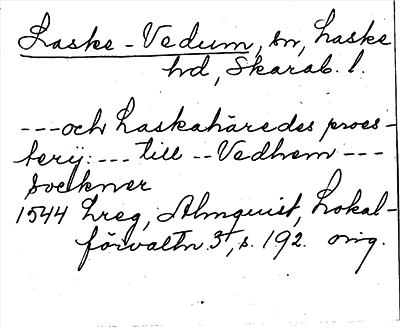 Laske-Vedum, sn, Laske
hd, Skarab. l.
---och Laskahäredes proes-
terij: --- till -- Vedhem ---
Sockner
1544 Lreg, Almquist, Lokal-
förvaltn. 3, s. 192. orig.